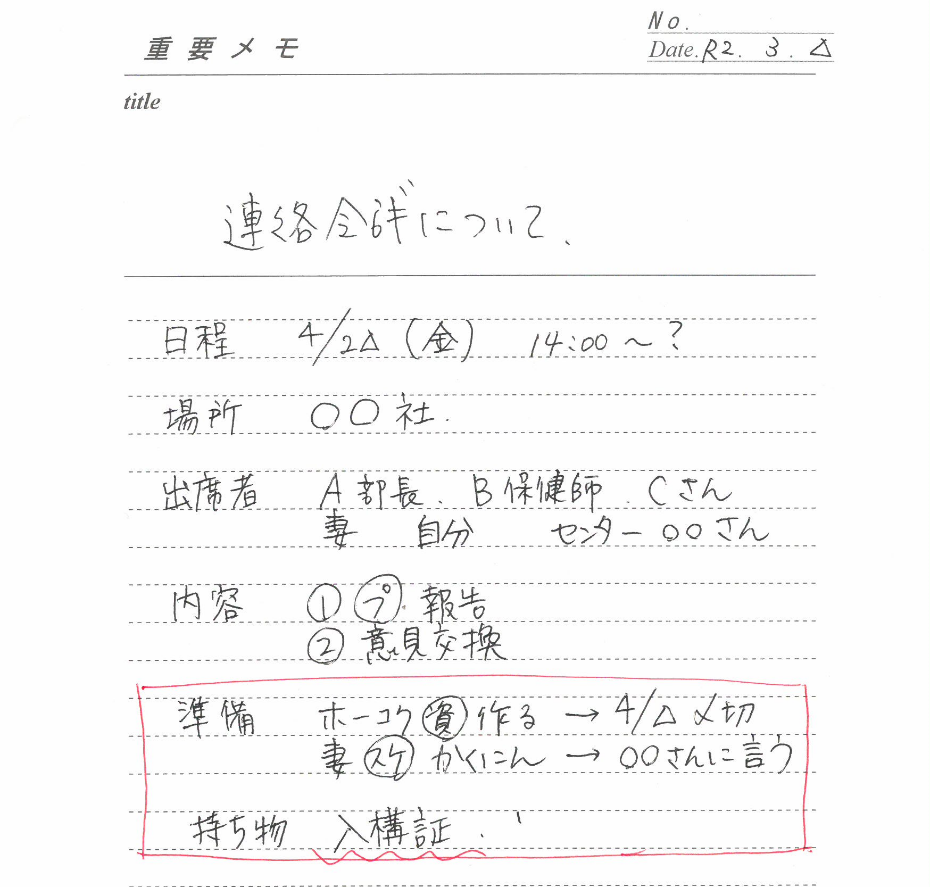 重要メモ
No.
Date. R2. 3. △
title
連絡会議について、
日程 4/2△(金) 14:00～?
場所 〇〇社.
出席者 A部長、B保健師、Cさん
妻 自分 センター〇〇さん
内容 ① プ 報告
② 意見交換
準備 ホーコク 資 作る → 4/△〆切
妻 スケ かくにん → 〇〇さんに言う
持ち物 入構証.